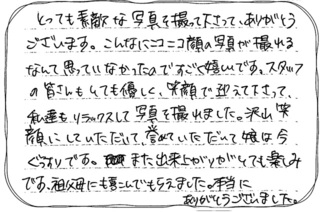 とっても素敵な写真を撮って下さって、ありがとう
ございます。こんなにニコニコ顔の写真が撮れる
なんて思っていなかったのですごく嬉しいです。スタッフ
の皆さんもとても優しく、笑顔で迎えてさって、
私達もリラックスして写真を撮れました。沢山笑
顔にしていただいて、誉めていただいて娘は今
ぐっすりです。また出来上がりがとても楽しみ
です。祖父母にも喜こんでもらえました。本当に
ありがとうございました。